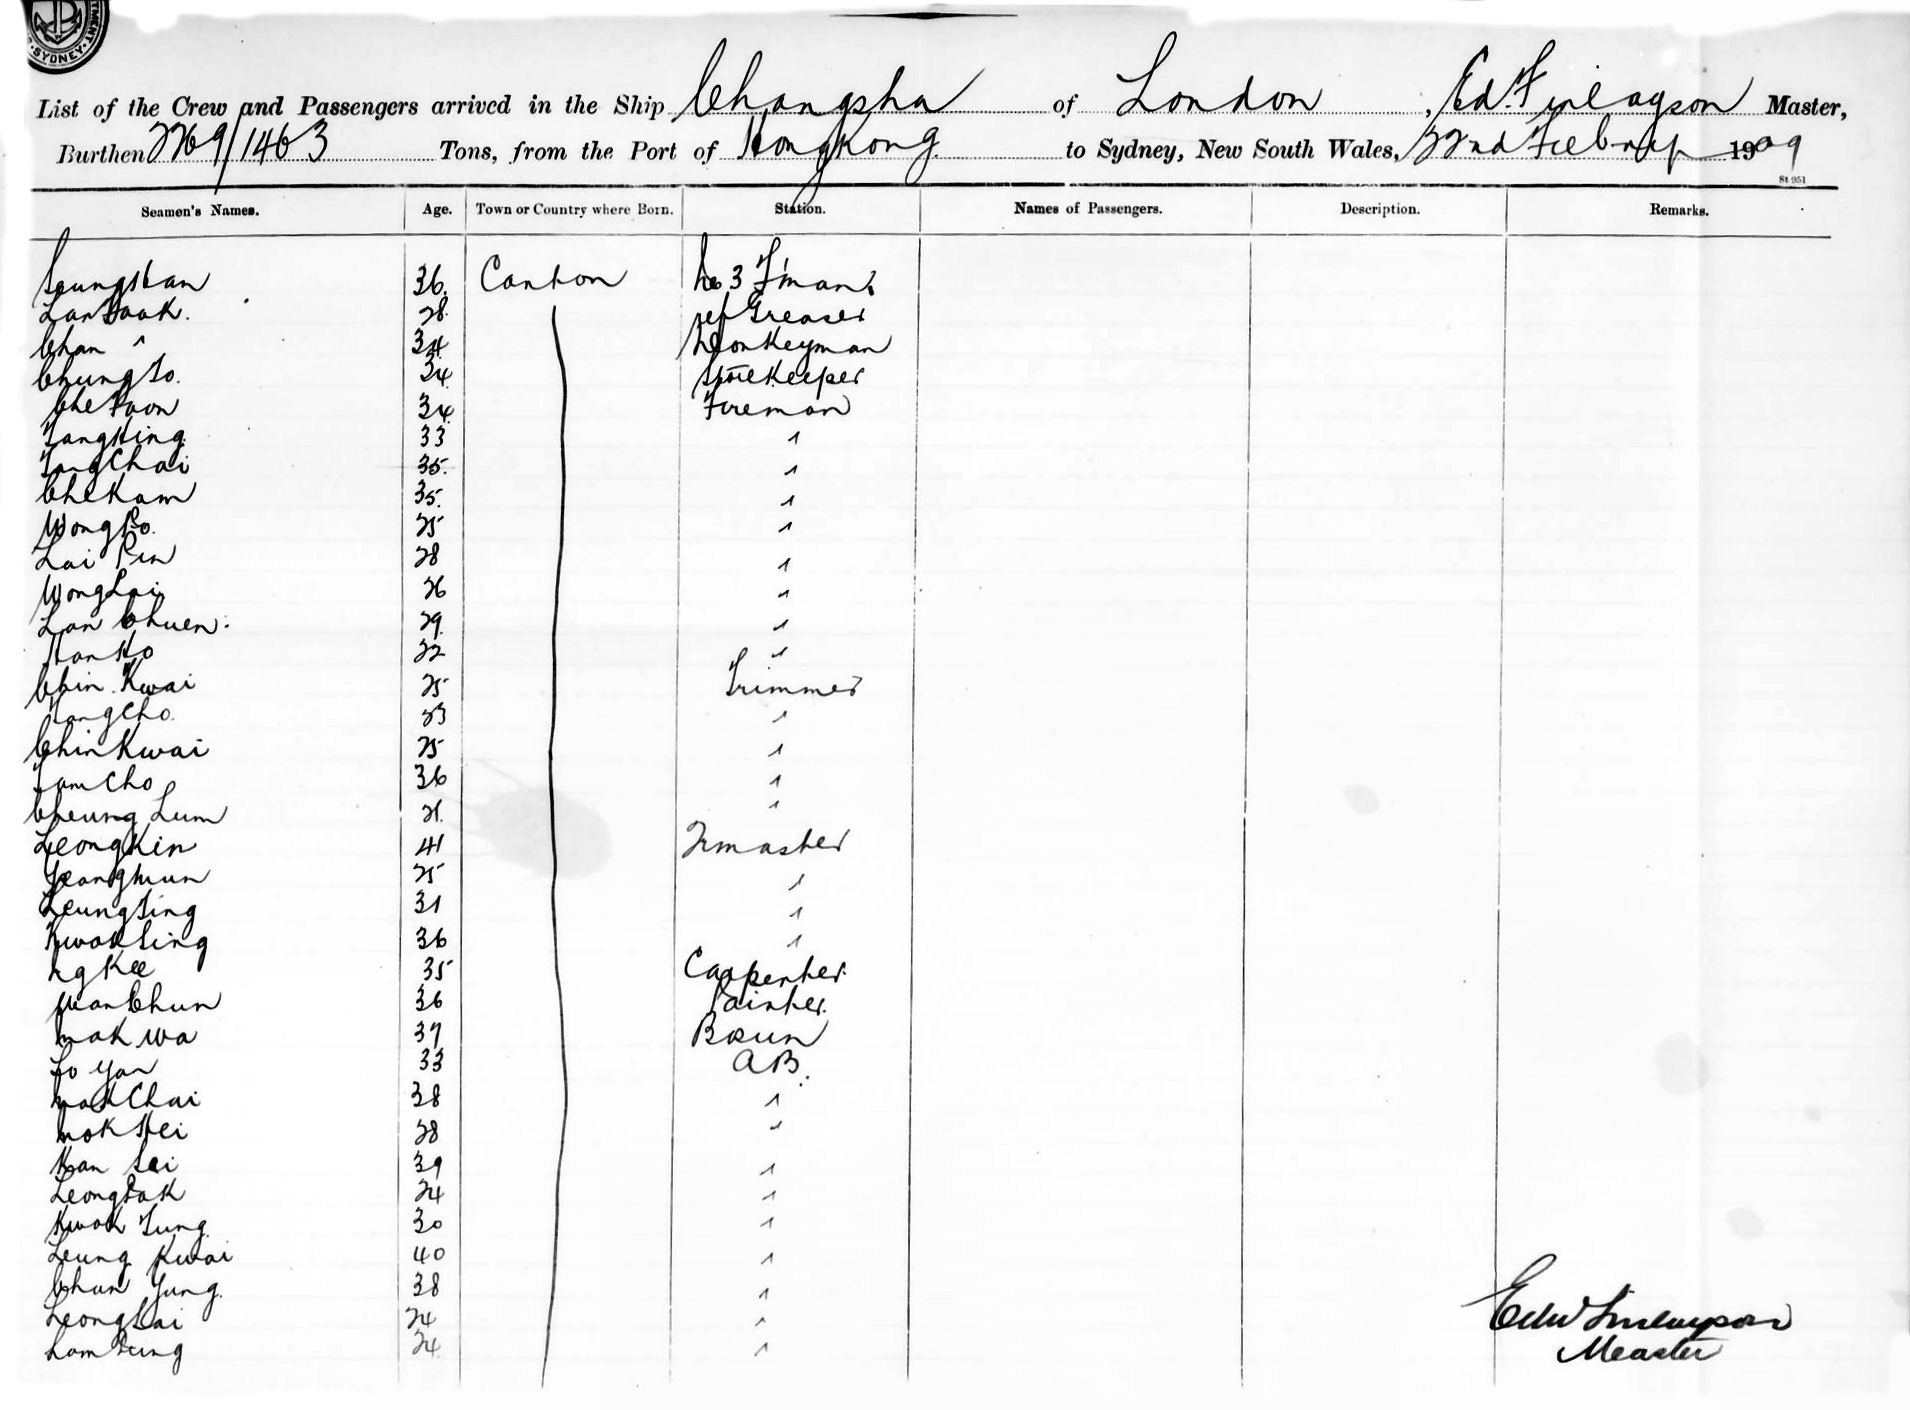 SYDNEY
List of the Crew and Passengers arrived in the Ship Changsha of London, Ed. Finlayson Master,
Burthen 2269/1463 Tons, from the Port of HongKong to Sydney, New South Wales, 22nd 1909
St 951
Seamen's Names. Age. Town or Country where Born. Station. Names of Passengers. Description. Remarks.
36. Canton No 3 F'man
28. Greaser
Chan " 34 Donkeyman
Chung So. 34 Storekeeper
34 Fireman
33 "
Tong Chai 35. "
Che Kam 35. "
Wong Po. 25 "
Lai Pin 28 "
Wong Lai 26 "
Lan Chuen. 29. "
22 "
Chin Kwai 25 Trimmer
23 "
Chin Kwai 25 "
Tam Cho 36 "
Cheung Lum 21. "
Leong Kin 41
25 "
Leung Sing 31 "
Kwok Sing 36 "
Ng Kee 35 Carpenter
36 Painter.
Mok Wa 37 Bosun
Lo Yan 33 AB.
Mok Chai 38 "
Mok Hei 28 "
Kan Sai 39 "
24 "
Kwok Tung 30 "
Leung Kwai 40 "
Chan Yung. 38 "
Leong Sai 24 "
24. "
Edw Finlayson
Master